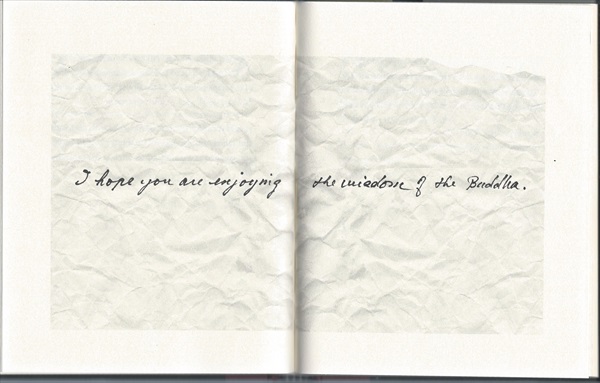 I hope you are enjoying the wisdom of the Buddha.